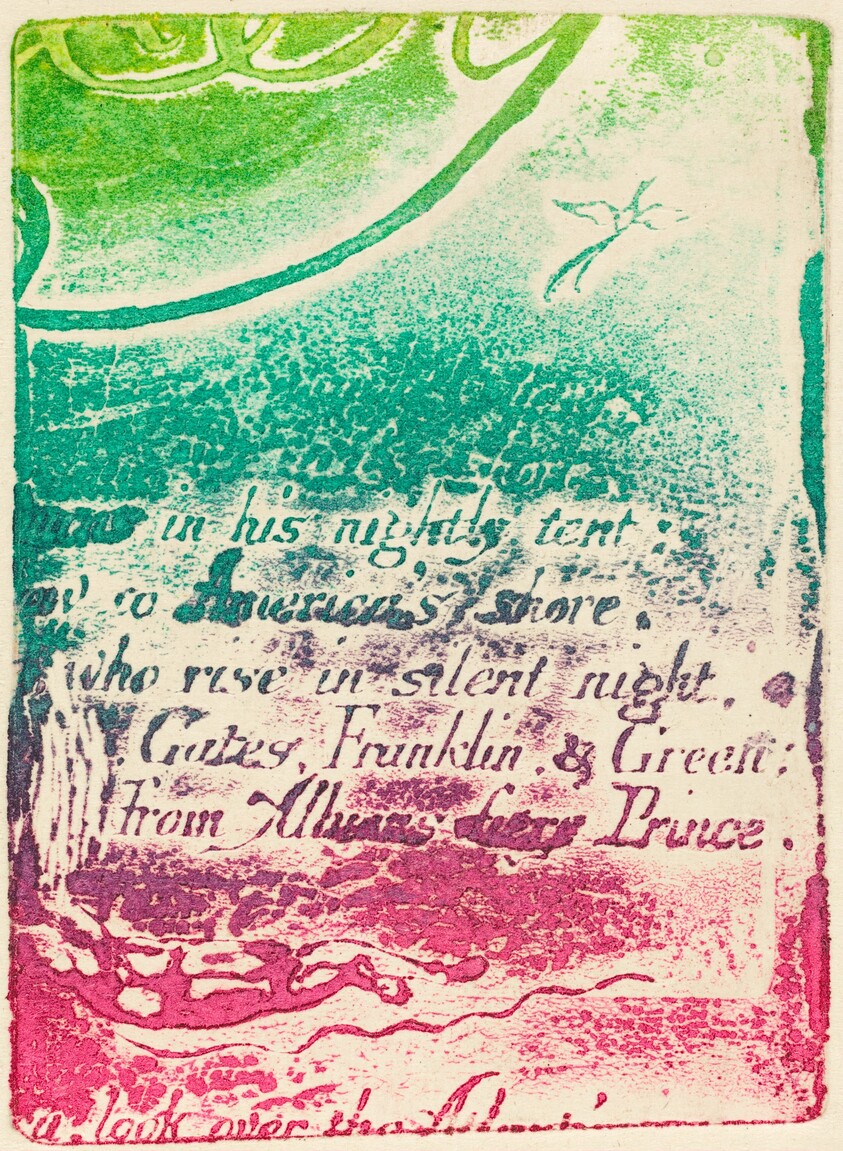 in his nightly tent:
to America's shore.
who rise in silent night,
Gates, Franklin, & Green;
From Albions fiery Prince.
look over the